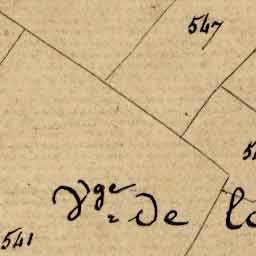 547
Vge De la
541